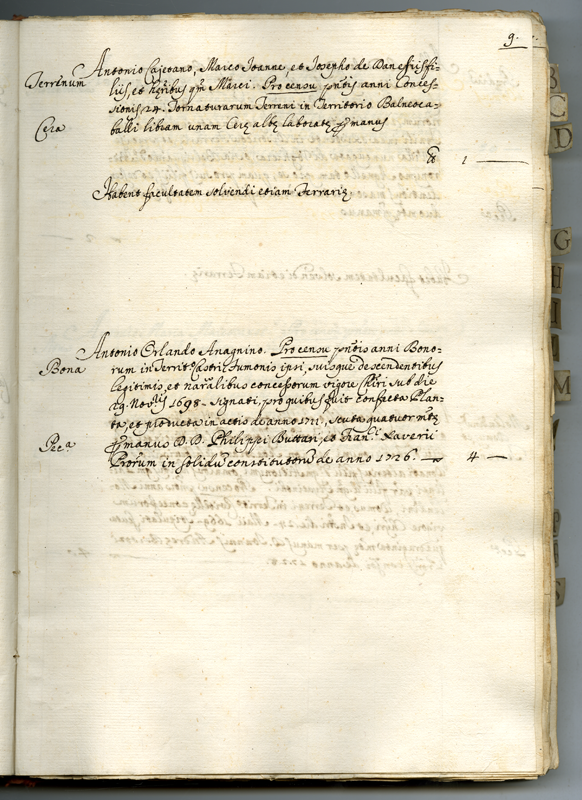 9.
Antonio Cajetano, Marco Joanne, et Josepho de Danesiis fi-
Terrenum
liis, et hęribus qm̃ Marci. Pro censu pñtis anni Conces-
sionis 24. Tornaturarum Terreni in Territorio Balneoca-
Cera
balli libram unam Cerę albę laboratę ꝑ manus
1 —
Habent facultatem solvendi etiam Ferrarię
Antonio Orlando Anagnino. Pro censu pñtis anni Bono-
Bona
rum in Territ. Castri Fumonis ipsi, suisque descendentibus
legitimis, et nãralibus concessorum vigore Chiri sub die
29. Novllis 1698. signati, pro quibus fuit confecta Plan-
ta, et producta in actis de anno 1711, scuta quatuor mtę
ꝑ manus D. D. Philippi Buttari, et Fran. Xaverii
Pec.a
Prorum in solidũ constitutorũ de anno 1726. —
4 —